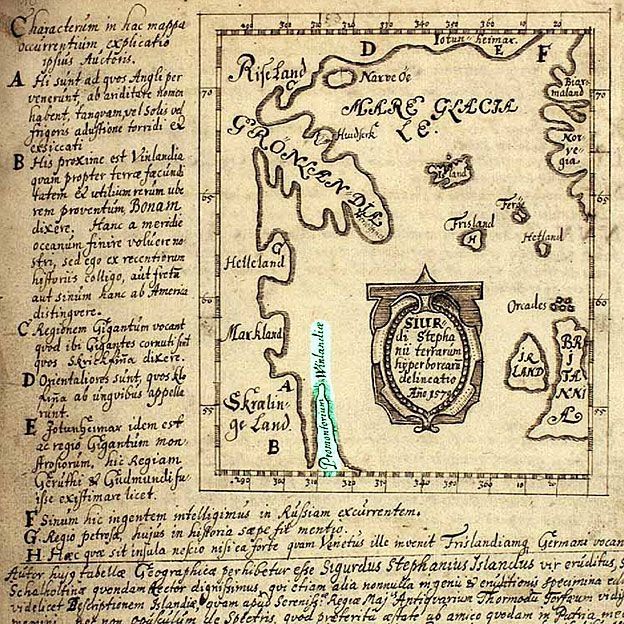 Characterum in hac mappa
occurrentium explicatio
ipsius Auctoris.
A Hi sunt ad quos Angli per
venerunt, ab ariditate nomen
habent, tanquam vel Solis vel
frigoris adustione torridi et
exsiccati
B His proxime est Vinlandia
quam propter terræ fæcundi
tatem et utilium rerum ube
rem proventum Bonam
dixere. Hanc a meridie
oceanum finire voluere no
stri, sed ego ex recentiorum
historiis colligo, aut fretum
aut sinum hanc ab America
distinguere.
C Regionem Gigantum vocant
quod ibi Gigantes cornuti sint
quos Skrickfinna dixere.
D Orientaliores sunt, quos Klo
fina ab unguibus appella
runt.
E Jotunheimar idem est
ac regio Gigantum mon
strosorum, hic Regiam
Geruthi et Gudmundi fu
isse existimare licet.
F Sinum hic ingentem intelligimus in Russiam excurrentem.
G Regio petrosa, hujus in historia sæpe fit mentio.
H Hæc quæ sit insula nescio nisi ea forte quam Venetus ille invenit Frislandiamq Germani vocan
Autor hujg tabellæ Geographicæ perhibetur esse Sigurdus Stephanius Islandus vir eruditus, S
Schalholtinæ quondam Rector dignissimus, qui etiam alia nonnulla ingenii et eruditionis specimina ed
videlicet Descriptionem Islandiæ, quam apud Sereniss. Regiæ Maj. Antiquarium Thormodum Torfæum vidj
opusculum de Spectris, quod præterita æstate ab amico quodam in Patria
300 310 320 330 340 350
D Iotunheimar. E F
Riseland
C
Narve Oe
Biar
maland
70
70
MARE GLACIA
LE.
Huidserk
Nor
ve
gia
GRÖNLAN
DIÆ
Island
65
65
Ferö
Frisland
H
Hetland
G
Helleland
60
60
Orcades
SIUR
di Stepha
nii terrarum
hyperborearū
delineatio
Año 1570
Markland
Winlandiæ
Promontorium
IR
LAND
BRI
TANNI
Æ
A
Skralin
ge Land
55
55
B